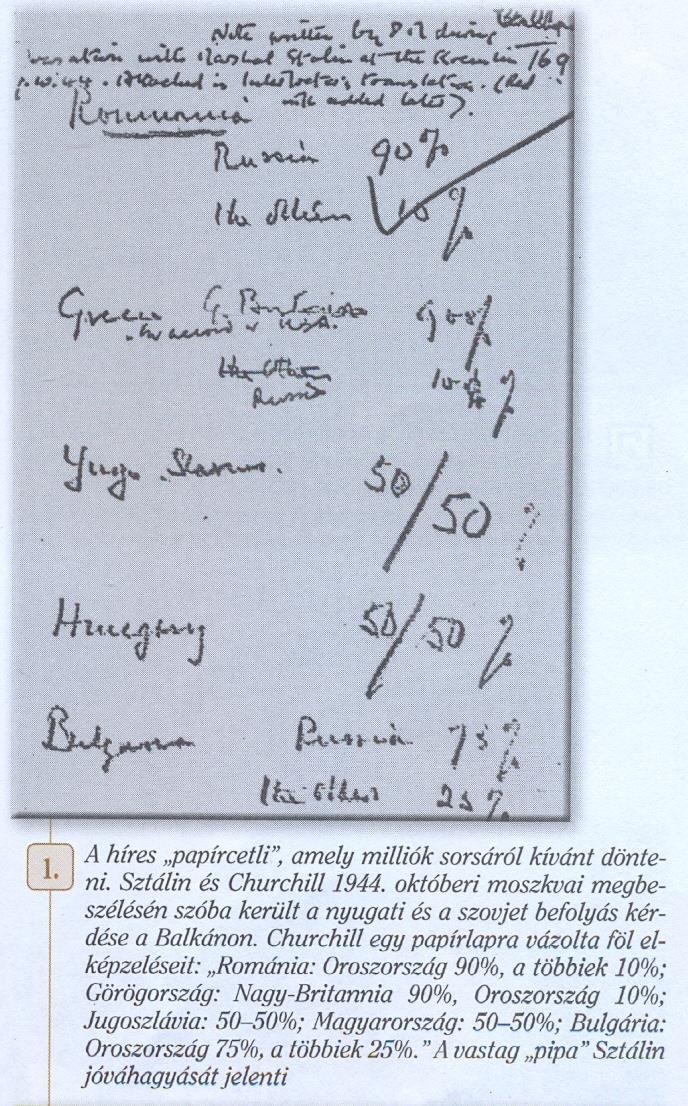 Note written by P.M. during
with Marshal Stalin at the Kremlin 169
Attached is translation. (Red
added later).
Roumania
Russia 90%
The others 10%
Greece G. Britain 90%
in accord w USA.
The Others
Russia 10%
Yugo Slavia. 50/50 %
Hungary 50/50 %
Bulgaria Russia 75%
the others 25%
1.
A híres „papírcetli”, amely milliók sorsáról kívánt dönte-
ni. Sztálin és Churchill 1944. októberi moszkvai megbe-
szélésén szóba került a nyugati és a szovjet befolyás kér-
dése a Balkánon. Churchill egy papírlapra vázolta föl el-
képzeléseit: „Románia: Oroszország 90%, a többiek 10%;
Görögország: Nagy-Britannia 90%, Oroszország 10%;
Jugoszlávia: 50–50%; Magyarország: 50–50%; Bulgária:
Oroszország 75%, a többiek 25%.” A vastag „pipa” Sztálin
jóváhagyását jelenti